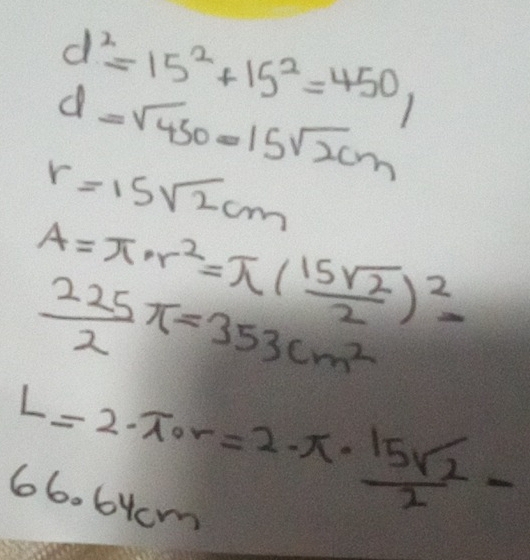 d²=15²+15²=450,
d=√450=15√2cm
r=15√2cm
A=π·r²=π(15√2/2)²=
225/2 π=353cm²
L=2·π·r=2·π·15√2/2=
66.64cm